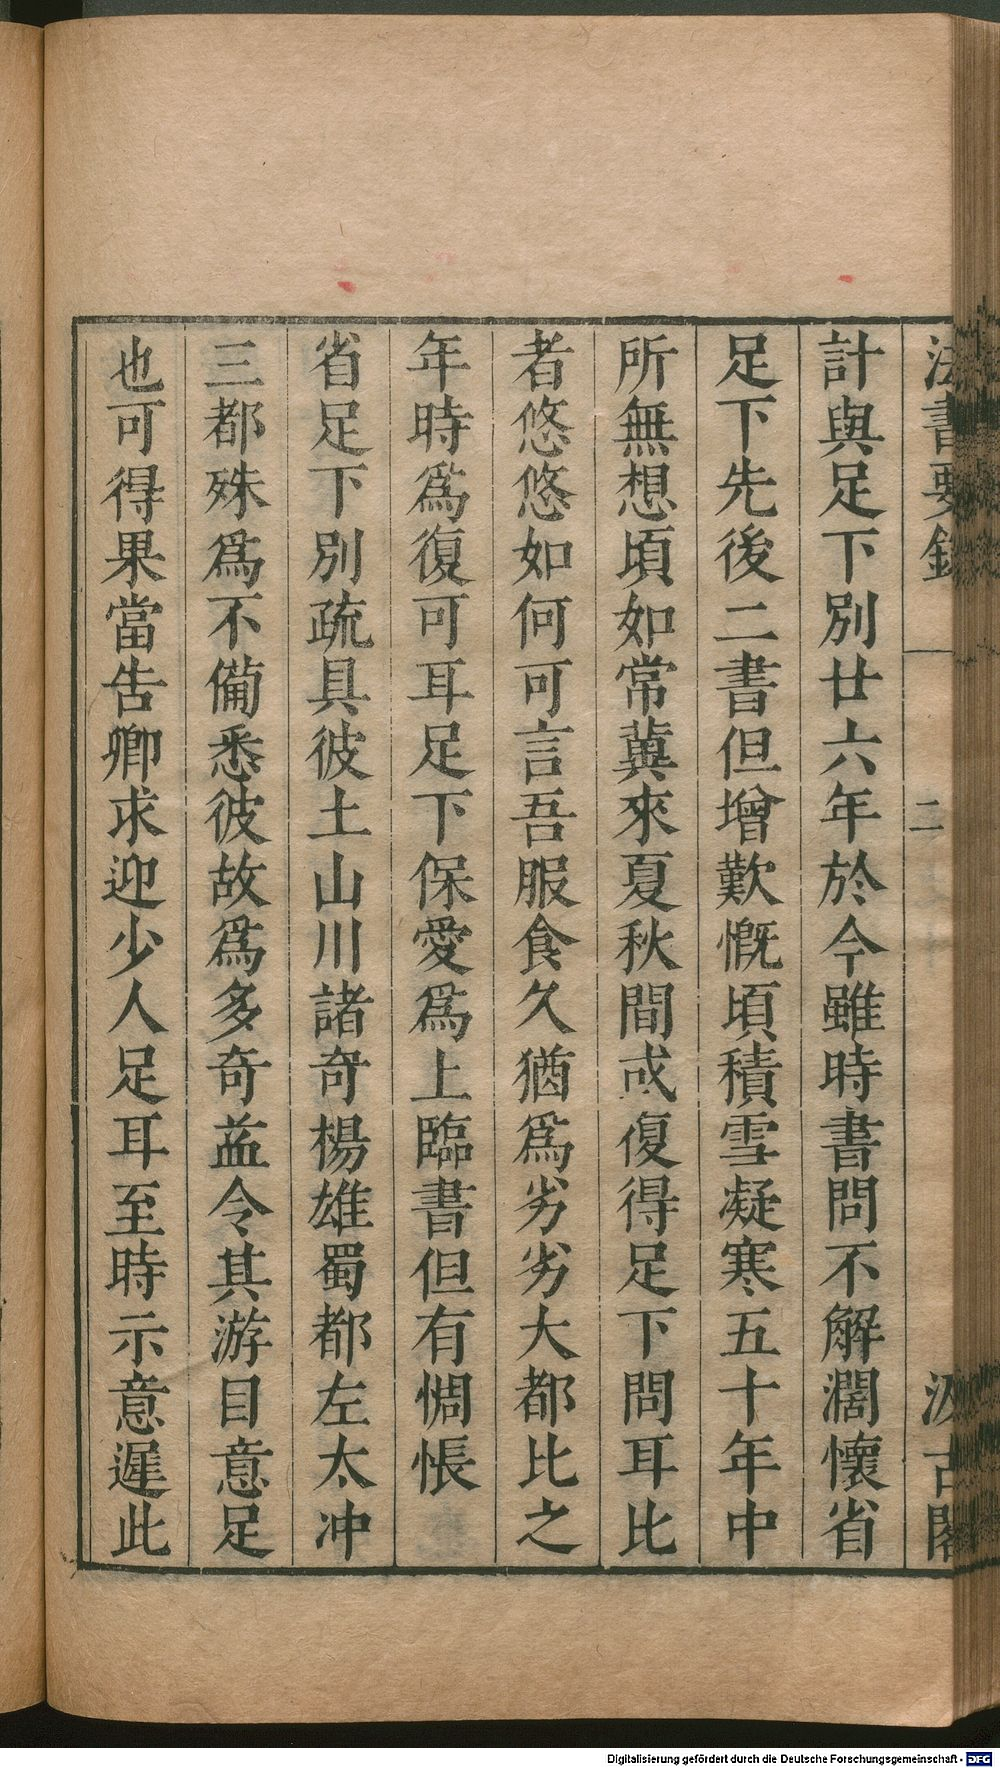 法書要錄 二 汲古閣
計與足下別廿六年於今雖時書問不解濶懷省
足下先後二書但增歎慨頃積雪凝寒五十年中
所無想頃如常冀來夏秋間或復得足下問耳比
者悠悠如何可言吾服食久猶爲劣劣大都比之
年時爲復可耳足下保愛爲上臨書但有惆悵
省足下別疏具彼土山川諸奇楊雄蜀都左太冲
三都殊爲不備悉彼故爲多奇益令其游目意足
也可得果當告卿求迎少人足耳至時示意遲此
Digitalisierung gefördert durch die Deutsche Forschungsgemeinschaft - DFG